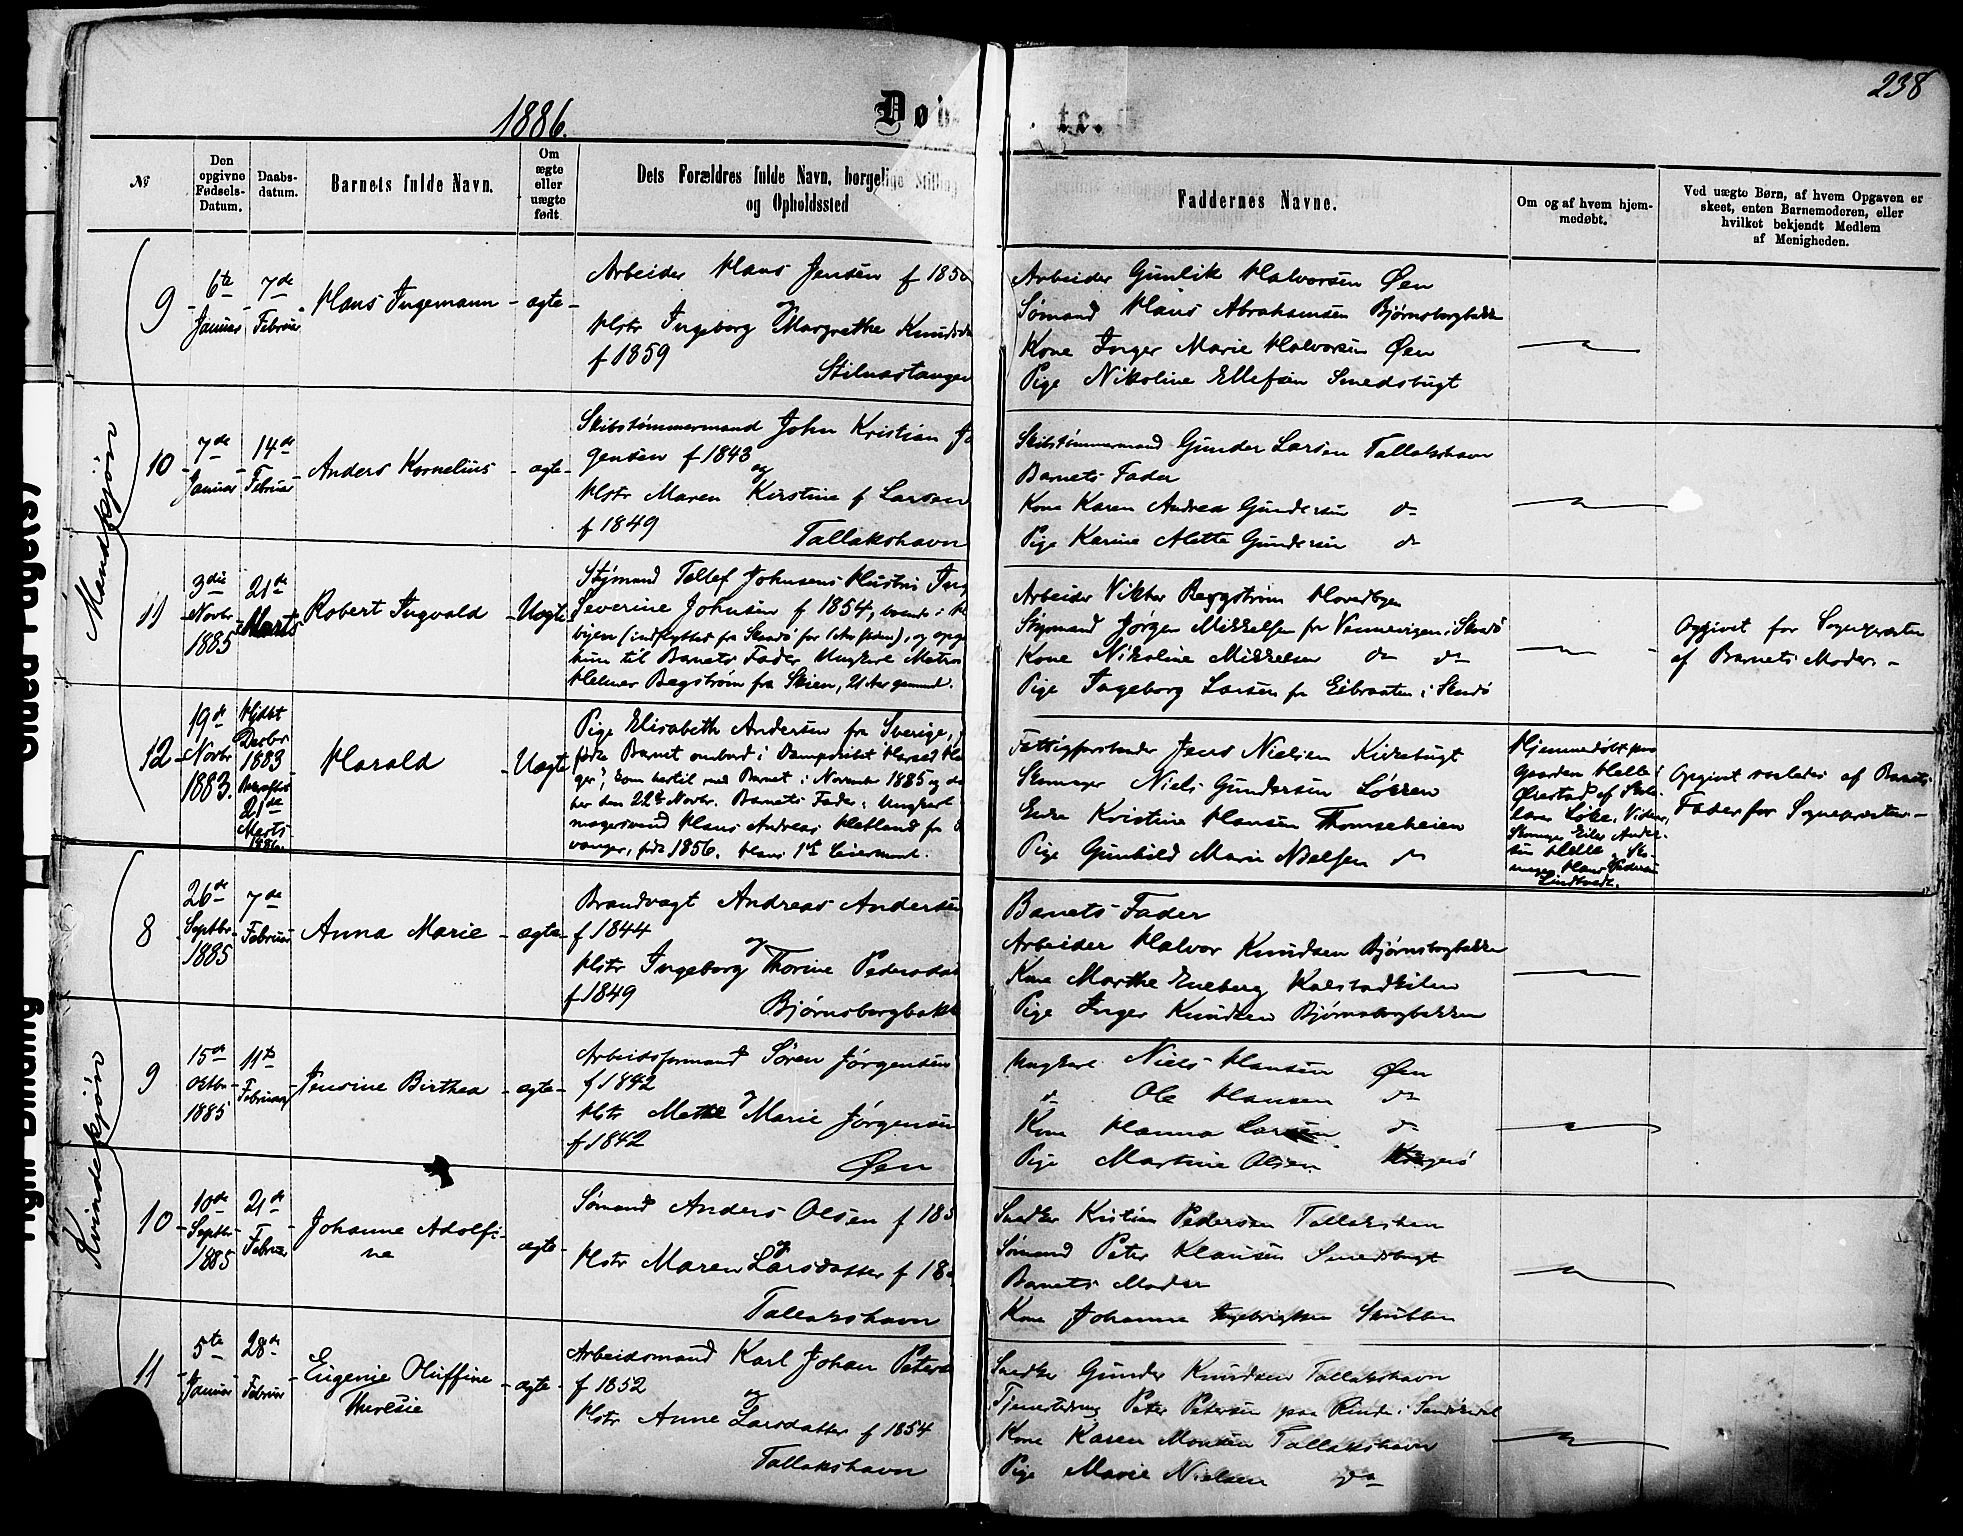 238
1886.
Døb te.
№
Den opgivne Fødsels-Datum.
Daabs-datum.
Barnets fulde Navn.
Om ægte eller uægte født.
Dets Forældres fulde Navn, borgelige Stilling og Opholdssted
Faddernes Navne.
Om og af hvem hjem-medøbt.
Ved uægte Børn, af hvem Opgaven er skeet, enten Barnemoderen, eller hvilket bekjendt Medlem af Menigheden.
Mandkjøn
9
6te Januar
7de Februar
Hans Ingemann
ægte
Arbeider Hans Jensen f 185
og
Hstr Ingeborg Margrethe Knuds
f 1859
Stilnestangen
Arbeider Gunlik Halvorsen Øen
Sømand Hans Abrahamsen Bjørnsborgbakken
Kone Inger Marie Halvorsen Øen
Pige Nikoline Ellefsen Smedsbugt
10
7de Januar
14de Februar
Anders Kornelius
ægte
Skibstømmermand John Kristian Jø
gensen f 1843
og
Hstr Maren Kirstine f Larsen
f 1849
Tallakshavn
Skibstømmermand Gunder Larsen Tallakshavn
Barnets Fader
Kone Karen Andrea Gundersen do
Pige Karine Alette Gundersen do
11
3die Novbr 1885
21de Marts
Robert Ingvald
Uægte
Styrmand Tellef Johnsens Hustru
Severine Johnsen f 1854, boende i
byen (indflyttet fra Skudø for Aar siden), og opgav
hun til Barnets Fader Ungkarl Matros
Helmer Begstrøm fra Skien, 21 Aar gammel.
Arbeider Viktor Beggstrøm Hovedbyen
Styrmand Jørgen Mikkelsen fr Vennevigen i Skudø
Kone Nikoline Mikkelsen do do
Pige Ingeborg Larsen fr Eibraaten i Skudø
Opgivet for Sognepresten
af Barnets Moder
12
19de Novbr 1883.
Hjdbt Decbr 1883
21de Marts 1886.
Harald
Uægte
Pige Elisabeth Andersen fra Sverige,
fødte Barnet ombord i Dampskibet
ger, kom hertil med Barnet i November 1885 og
her den 22de Novbr. Barnets Fader: Ungkarl
magersvend Hans Andreas Hetland fr
vanger, født 1856. Hans 1ste Leiermaal.
Fattigforstander Jens Nielsen Kirkebugt
Skomager Niels Gundersen Løkken
Enke Kristine Hansen Thomseheien
Pige Gunhild Marie Nielsen do
Hjemmedøbt paa
Gaarden Helle i
Ørestad af
Opgivet saaledes af Barnets
Fader for Sognepresten
Kvindekjøn
8
26de Septbr 1885
7de Februar
Anna Marie
ægte
Brandvagt Andreas Andersen
f 1844
og
Hstr Ingeborg Thorine Pedersdat
f 1849
Bjørnsborgbakk
Barnets Fader
Arbeider Halvor Knudsen Bjørnsborgbakken
Kone Marthe Eneberg Kalstadkilen
Pige Inger Knudsen Bjørnsborgbakken
9
15de Octbr 1885
11te Februar
Jensine Birthea
ægte
Arbeidsformand Søren Jørgensen
f 1842
og
Hstr Mette Marie Jørgensen
f 1842
Øen
Ungkarl Niels Hansen Øen
do Ole Hansen do
Kone Hanna Larsen do
Pige Martine Olsen Kragerø
10
10de Septbr 1885
21de Februar
Johanne Adolfi-
ne
ægte
Sømand Anders Olsen f 185
og
Hstr Maren Larsdatter f 18
Tallakshavn
Snedker Kristian Pedersen Tallakshavn
Sømand Peter Klausen Smedsbugt
Barnets Moder
Kone Johanne Ingebrigtsen Skubben
11
5te Januar
28de Februar
Eugenie Oluffine
Theresie
ægte
Arbeidsmand Karl Johan Peters
f 1852
og
Hstr Anne Larsdatter f 1854
Tallakshavn
Snedker Gunder Knudsen Tallakshavn
Tjenestedreng Peter Petersen paa Rinde i Sandøkedal
Kone Karen Monsen Tallakshavn
Pige Marie Nielsen do